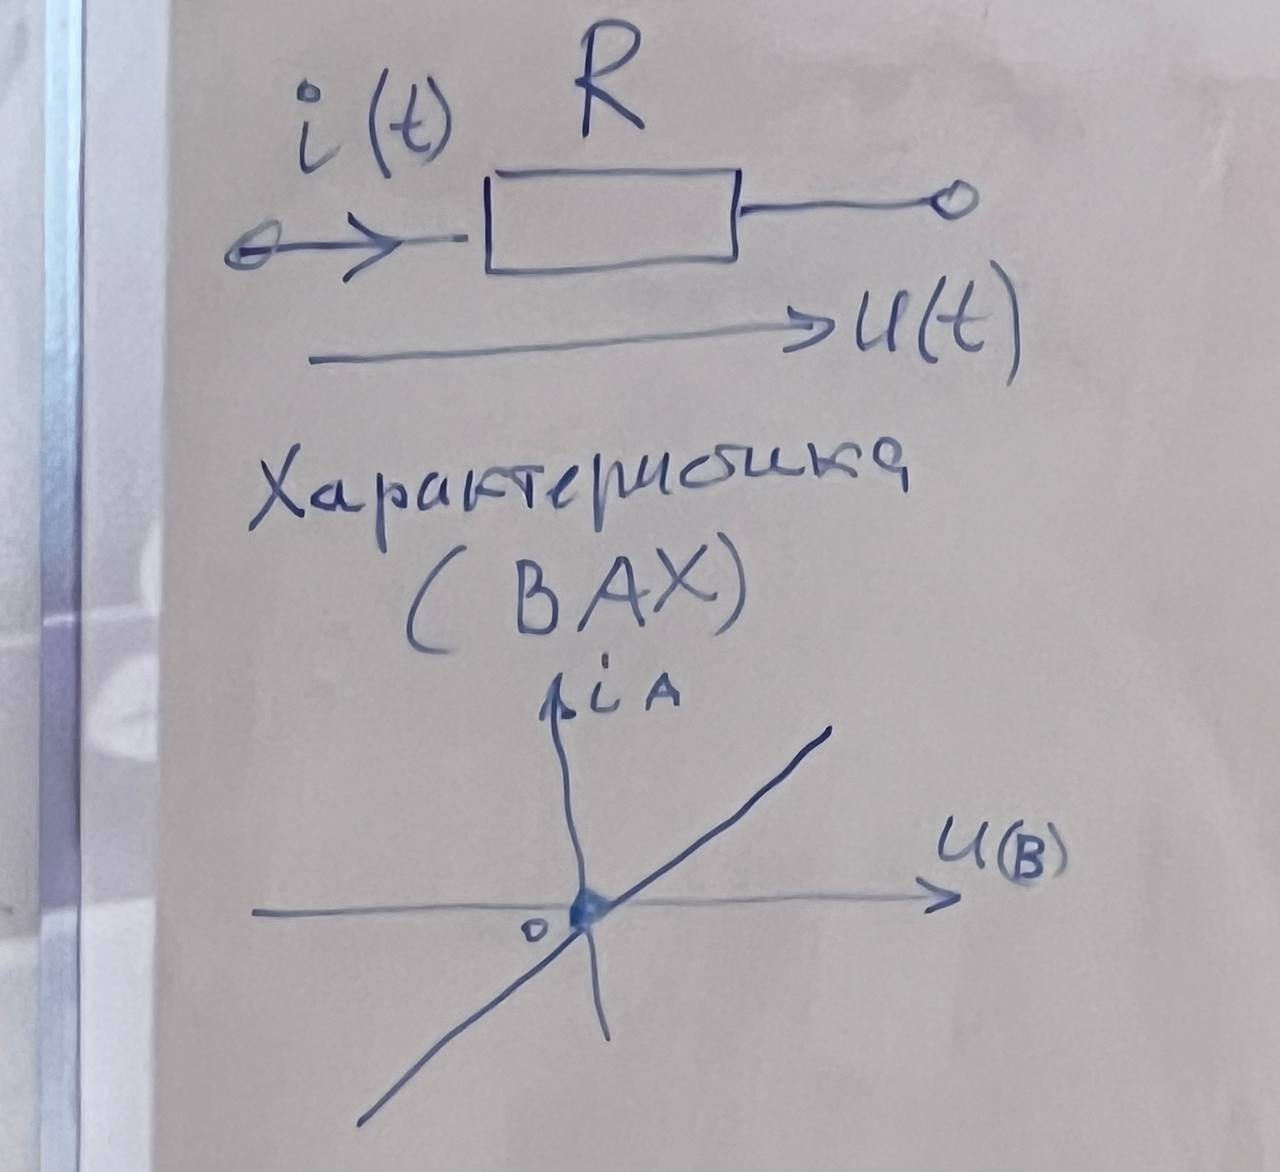 R
i(t)
U(t)
Характеристика
(ВАХ)
i A
U(В)
0